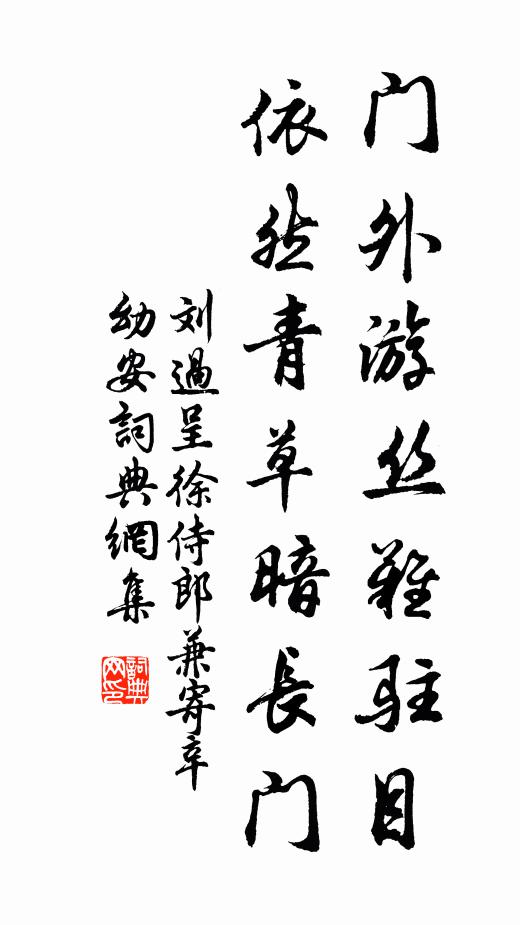 门外游丝难駐目
依然青草暗長门
刘過呈徐侍郎兼寄辛
幼安詞典網集
詞典网印